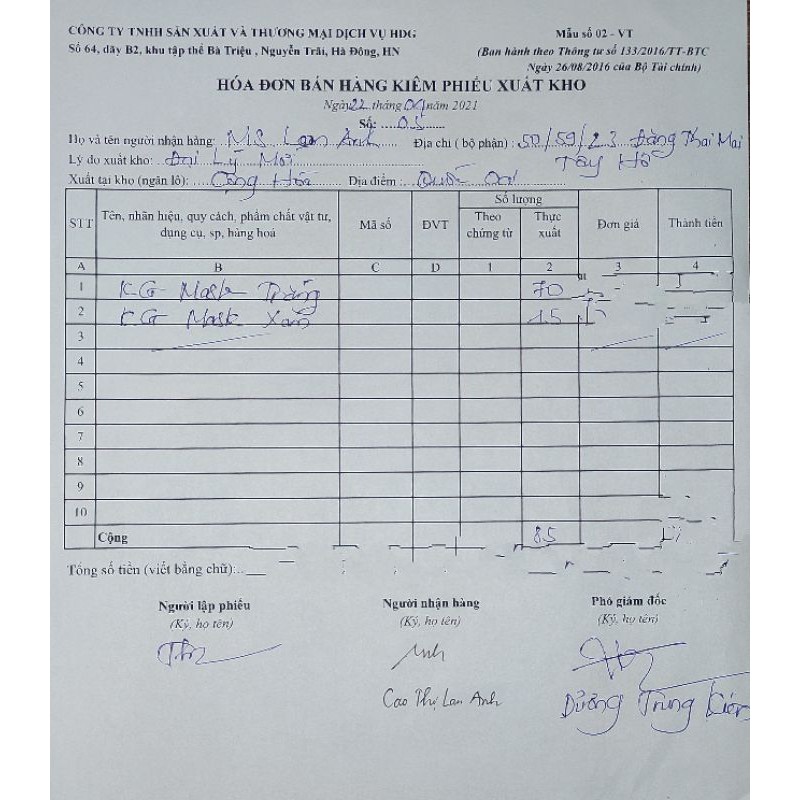 CÔNG TY TNHH SẢN XUẤT VÀ THƯƠNG MẠI DỊCH VỤ HDG
Số 64, dãy B2, khu tập thể Bà Triệu , Nguyễn Trãi, Hà Đông, HN
Mẫu số 02 - VT
(Ban hành theo Thông tư số 133/2016/TT-BTC
Ngày 26/08/2016 của Bộ Tài chính)
HÓA ĐƠN BÁN HÀNG KIÊM PHIẾU XUẤT KHO
Ngày 22 tháng 04 năm 2021
Số: ....05......
Họ và tên người nhận hàng: MS Lan Anh Địa chỉ ( bộ phận) : 50/59/23 Đặng Thai Mai
Lý do xuất kho: Đại Lý Mới Tây Hồ
Xuất tại kho (ngăn lô): Cộng Hòa Địa điểm : Quốc Oai
STT Tên, nhãn hiệu, quy cách, phẩm chất vật tư, dụng cụ, sp, hàng hoá Mã số ĐVT Số lượng Theo chứng từ Thực xuất Đơn giá Thành tiền
A B C D 1 2 3 4
1 KG Mask Trắng 70
2 KG Mask Xanh 15
3
4
5
6
7
8
9
10
Cộng 85
Tổng số tiền (viết bằng chữ):
Người lập phiếu Người nhận hàng Phó giám đốc
(Ký, họ tên) (Ký, họ tên) (Ký, họ tên)
Anh
Cao Thị Lan Anh Dương Trung Kiên